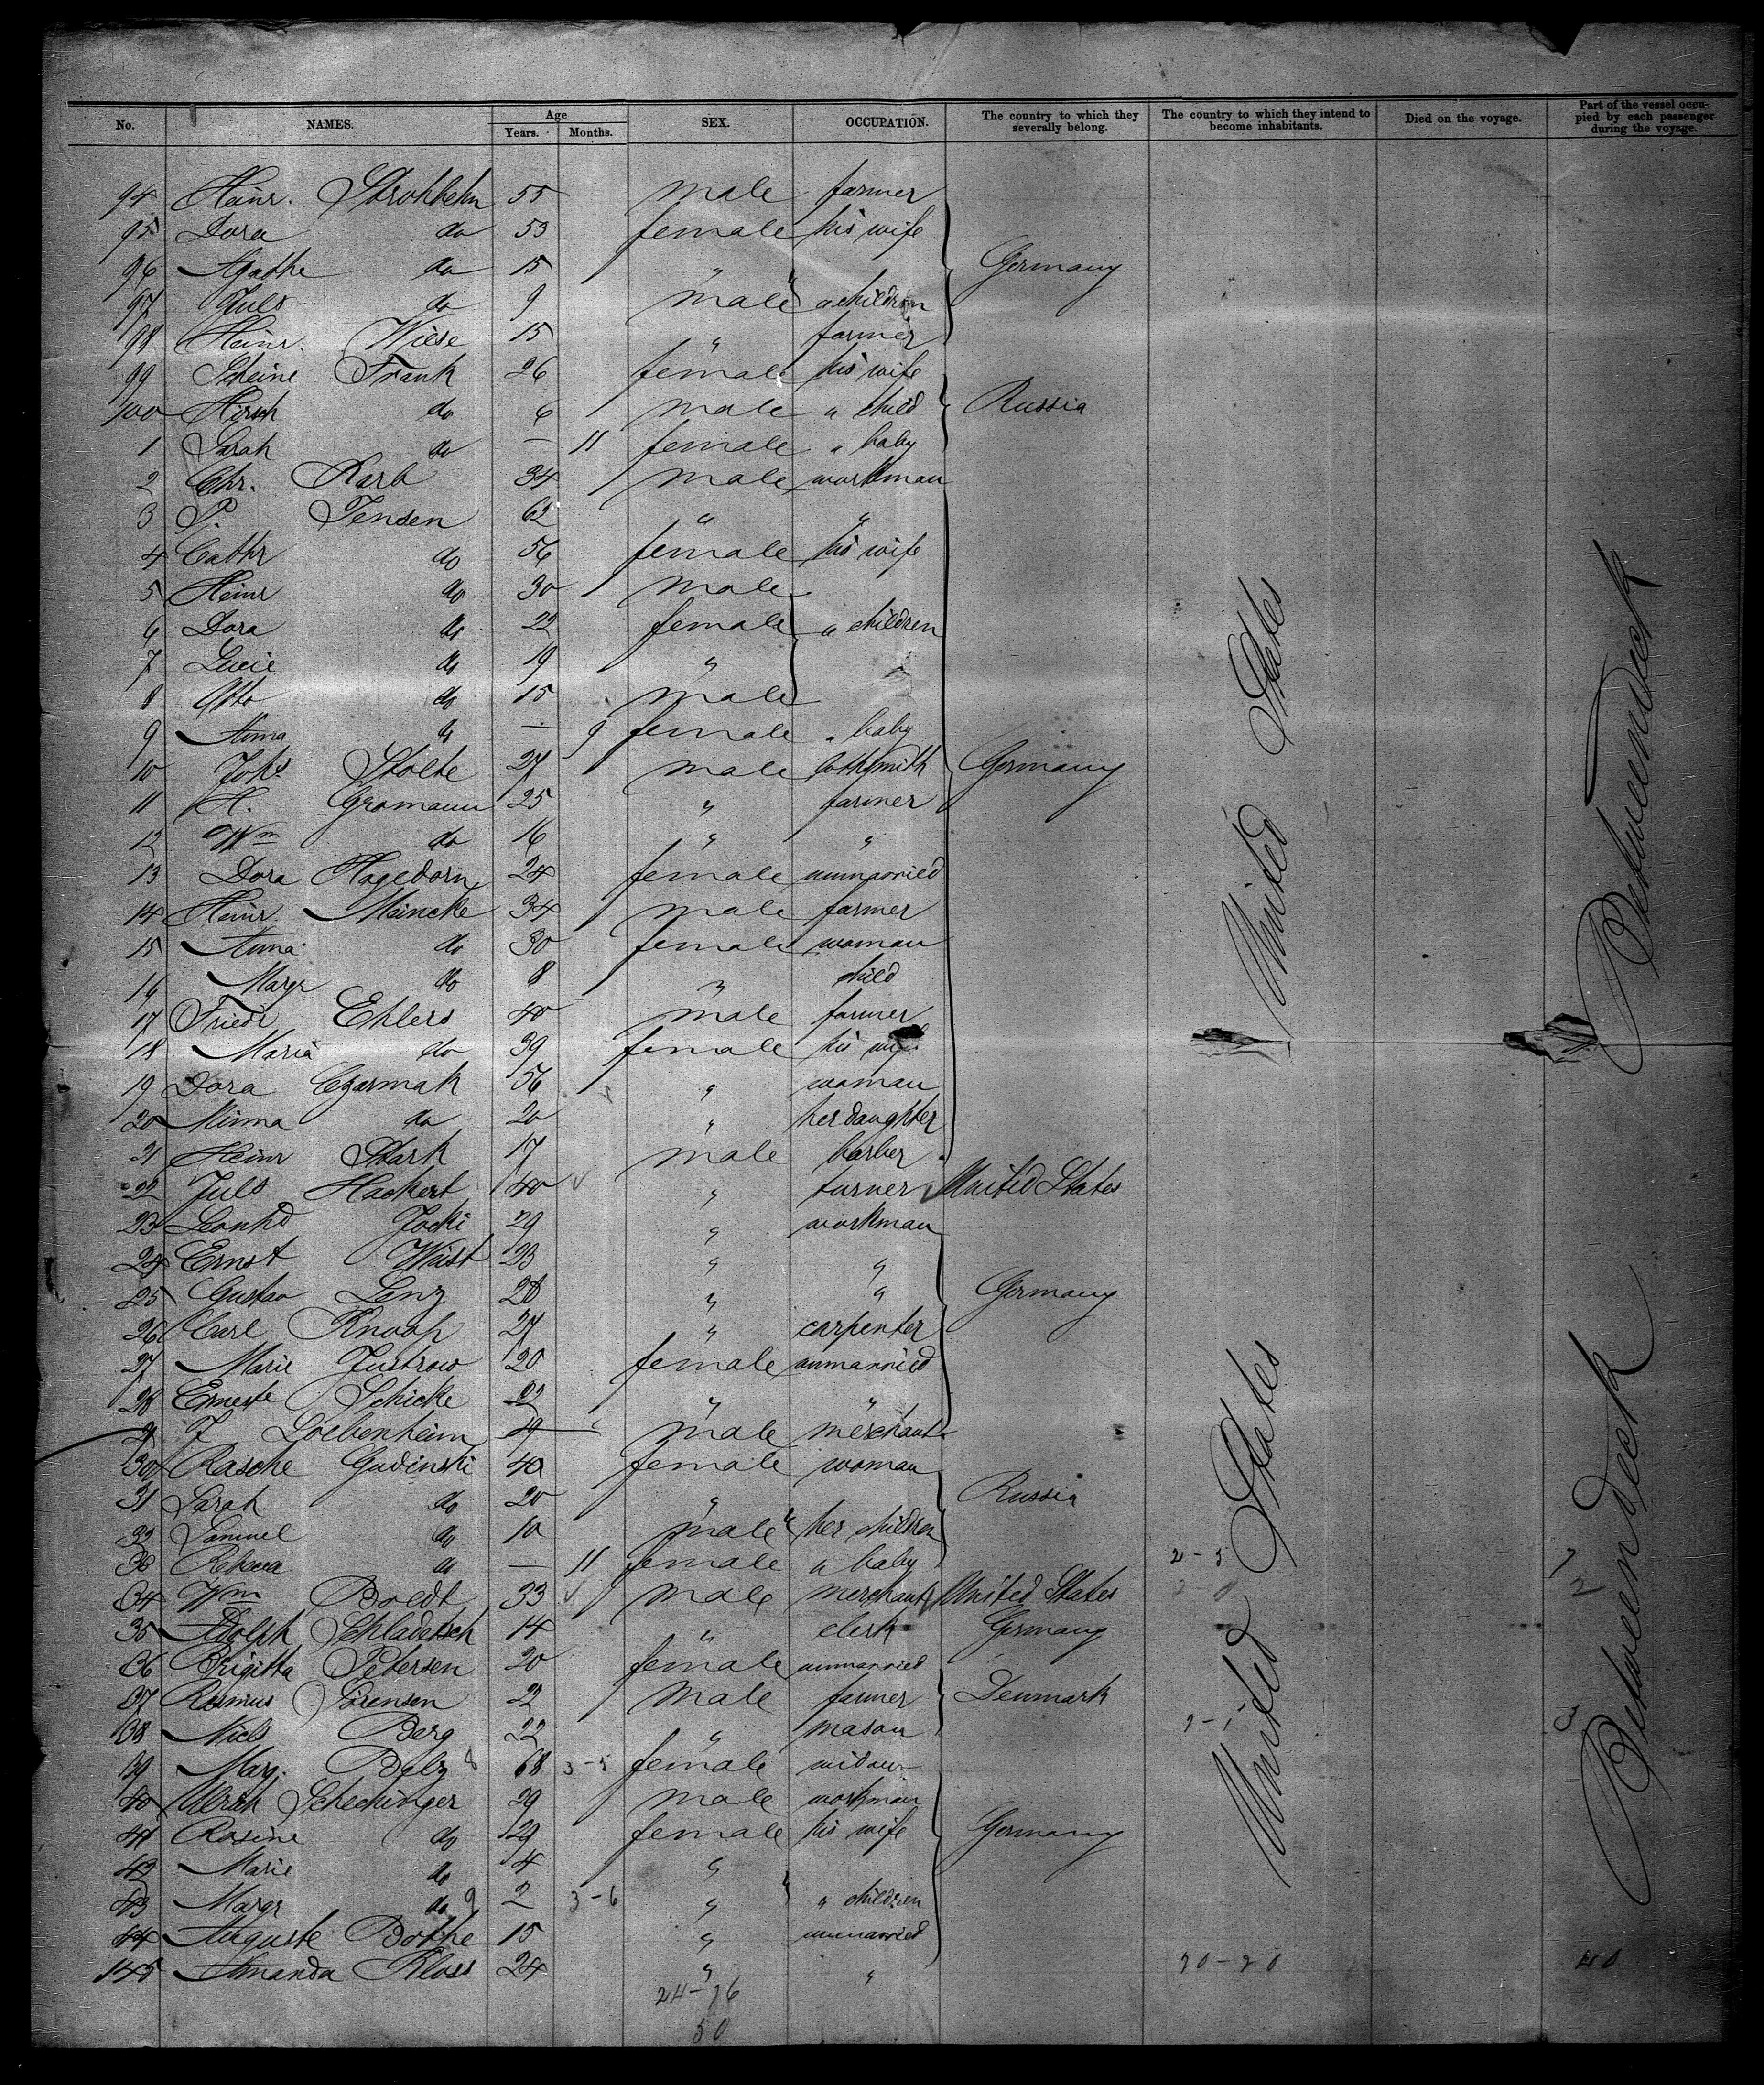 No. NAMES. Age Years. Months. SEX. OCCUPATION. The country to which they severally belong. The country to which they intend to become inhabitants. Died on the voyage. Part of the vessel occupied by each passenger during the voyage.
94 Heinr. Strohbehn 55 male farmer
95 Dora do 53 female his wife
96 Agathe do 15 " Germany
97 Juls do 9 male " children
98 Heinr. Wiese 15 " farmer
99 Scheine Frank 26 female his wife
100 Hirsch do 6 male " child Russia
1 Sarah do — 11 female " baby
2 Chr. Karb 34 male workman
3 P. Jensen 62 " "
4 Cathr do 56 female his wife
5 Heinr do 30 male
6 Dora do 22 female " children
7 Lucie do 19 "
8 Otto do 15 male
9 Anna do — 9 female " baby
10 Johs Stolte 27 male Germany
11 H. Gromann 25 " farmer
12 Wm do 16 " "
13 Dora Hagedorn 24 female unmarried
14 Heinr. Meincke 34 male farmer
15 Anna do 30 female woman
16 Margr do 8 " child
17 Friedr Ehlers 40 male farmer
18 Maria do 39 female his wife
19 Dora Czarmak 56 " woman
20 Minna do 20 " her daughter
21 Heinr Stark 17 male barber
22 Juls Hackert 40 " turner United States
23 Leonhd Jocki 29 " workman
24 Ernst Wüst 23 " "
25 Gustav Lenz 28 " " Germany
26 Carl Knoop 27 " carpenter
27 Marie Justrow 20 female unmarried
28 Erneste Schicke 22 " "
29 J Loebenheim 19 male merchant
30 Rasche Gudinski 40 female woman
31 Sarah do 20 " Russia
32 Samuel do 10 male " her children
33 Rebecca do — 11 female " baby
34 Wm Boldt 33 male merchant United States
35 Adolph Schladetsch 14 " clerk Germany
36 Brigitta Petersen 20 female unmarried
37 Rasmus Sörensen 22 male farmer Denmark
38 Niels Berg 22 " mason
39 Marg. Belz 68 3-5 female widow
40 Ulrich Schechinger 29 male workman
41 Rosine do 29 female his wife Germany
42 Marie do 4 "
43 Margr do 9 2 3-6 " " children
44 Auguste Bothe 15 " unmarried
145 Amanda Kloss 24 " "
24-26
50
United States
United States
2-5
20-20
Betweendeck
Betweendeck
2
3
40